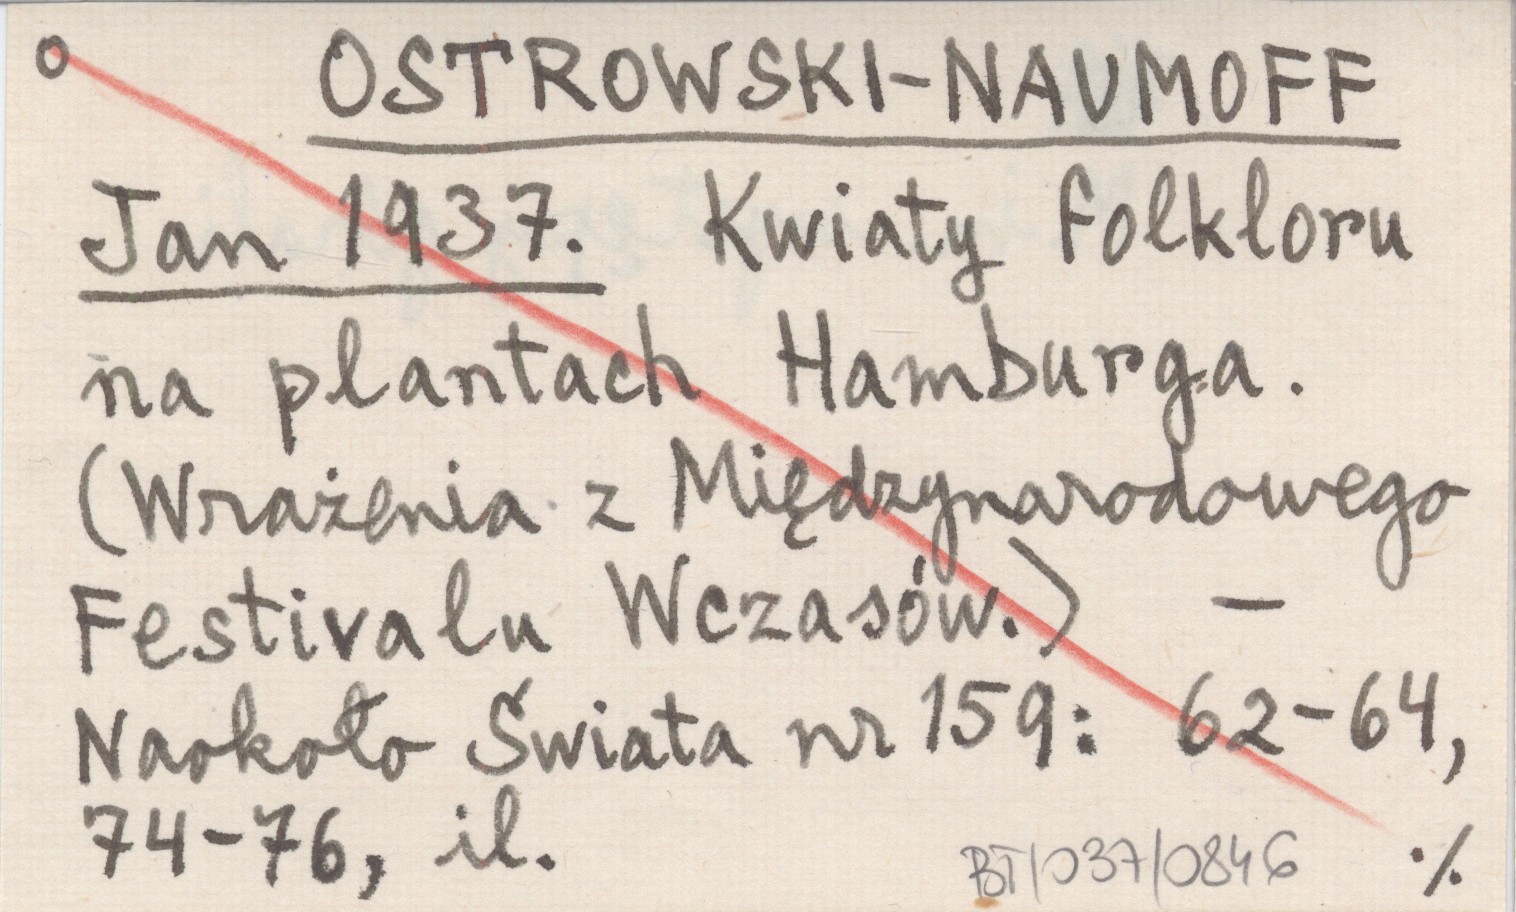 o OSTROWSKI-NAUMOFF
Jan 1937. Kwiaty folkloru
na plantach Hamburga.
(Wrażenia z Międzynarodowego
Festivalu Wczasów.) –
Naokoło Świata nr 159: 62-64,
74-76, il.
BT/037/0846 ./.